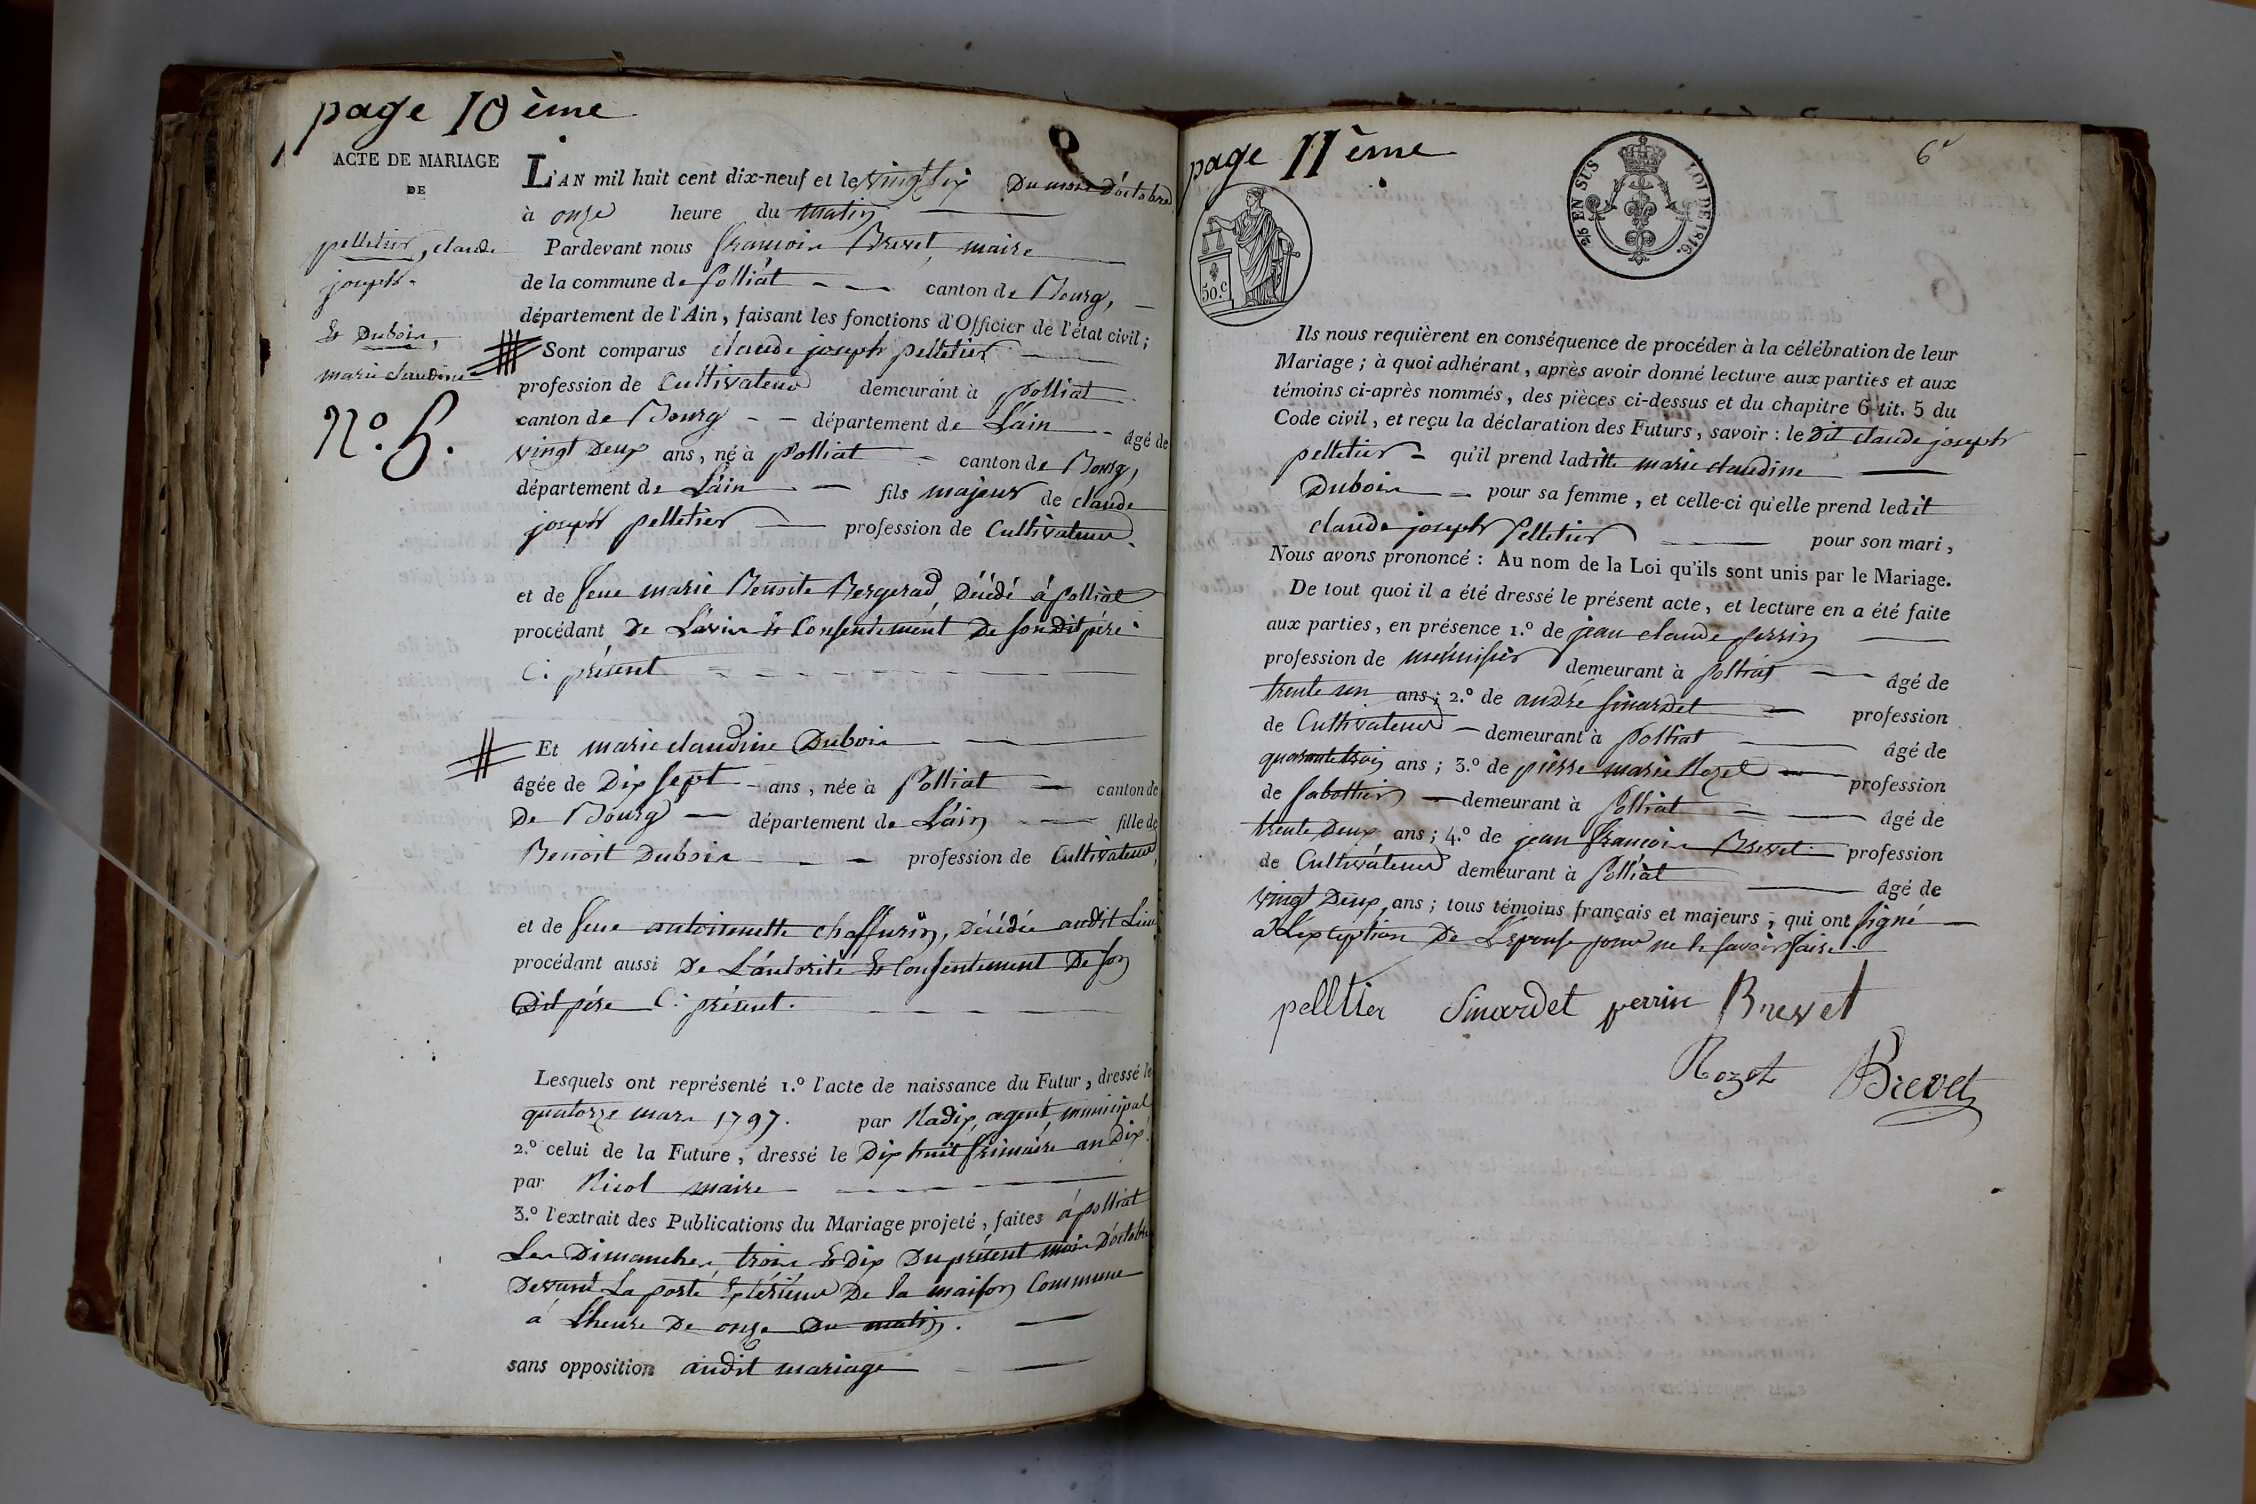 page 10ème
ACTE DE MARIAGE
DE
pelletier, claude
joseph.
Et Dubois,
marie claudine
N.º 5.
L'AN mil huit cent dix-neuf et le vingt six Du mois D'octobre
à onze heure du matin
Pardevant nous françois Brevet, maire
de la commune de Polliat canton de Bourg,
département de l'Ain, faisant les fonctions d'Officier de l'état civil;
Sont comparus claude joseph pelletier
profession de Cultivateur demeurant à polliat
canton de Bourg département de L'ain âgé de
vingt Deux ans, né à Polliat canton de Bourg,
département de L'ain fils majeur de claude
joseph pelletier profession de Cultivateur
et de feue marie Benoite Bergerad, Décédé à Polliat
procédant De L'avis Et Consentement De son Dit père
Ci présent
Et marie claudine Dubois
âgée de Dix sept ans, née à Polliat canton de
De Bourg département de L'ain fille de
Benoit Dubois profession de Cultivateur,
et de feue antoinette chaffurin, Décédée audit Lieu
procédant aussi De L'autorité Et Consentement De son
Dit père Ci présent.
Lesquels ont représenté 1.º l'acte de naissance du Futur, dressé le
quatorze mars 1797. par Nadix, agent municipal
2.º celui de la Future, dressé le Dix huit frimaire an Dix
par Nicol maire
3.º l'extrait des Publications du Mariage projeté, faites à polliat
Les Dimanches trois Et Dix Du présent mois D'octobre
Devant La porte Extérieur De la maison Commune
à L'heure De onze Du matin.
sans opposition audit mariage
page 11ème
6e
2/5 EN SUS
LOI DE 1816.
50.c
Ils nous requièrent en conséquence de procéder à la célébration de leur
Mariage; à quoi adhérant, après avoir donné lecture aux parties et aux
témoins ci-après nommés, des pièces ci-dessus et du chapitre 6 tit. 5 du
Code civil, et reçu la déclaration des Futurs, savoir: le Dit claude joseph
pelletier qu'il prend laditte marie claudine
Dubois pour sa femme, et celle-ci qu'elle prend ledit
claude joseph Pelletier pour son mari,
Nous avons prononcé: Au nom de la Loi qu'ils sont unis par le Mariage.
De tout quoi il a été dressé le présent acte, et lecture en a été faite
aux parties, en présence 1.º de jean claude perrin
profession de menuisier demeurant à polliat âgé de
trente un ans; 2.º de andré sinardet profession
de Cultivateur demeurant à Polliat âgé de
quarante trois ans; 3.º de pierre marie Rozet profession
de sabottier demeurant à Polliat âgé de
trente Deux ans; 4.º de jean françois Brevet profession
de Cultivateur demeurant à Polliat âgé de
vingt Deux ans; tous témoins français et majeurs, qui ont signé
à L'exception De L'épouse pour ne le savoir faire.
pelltier Sinardet perrin Brevet
Rozet Brevet